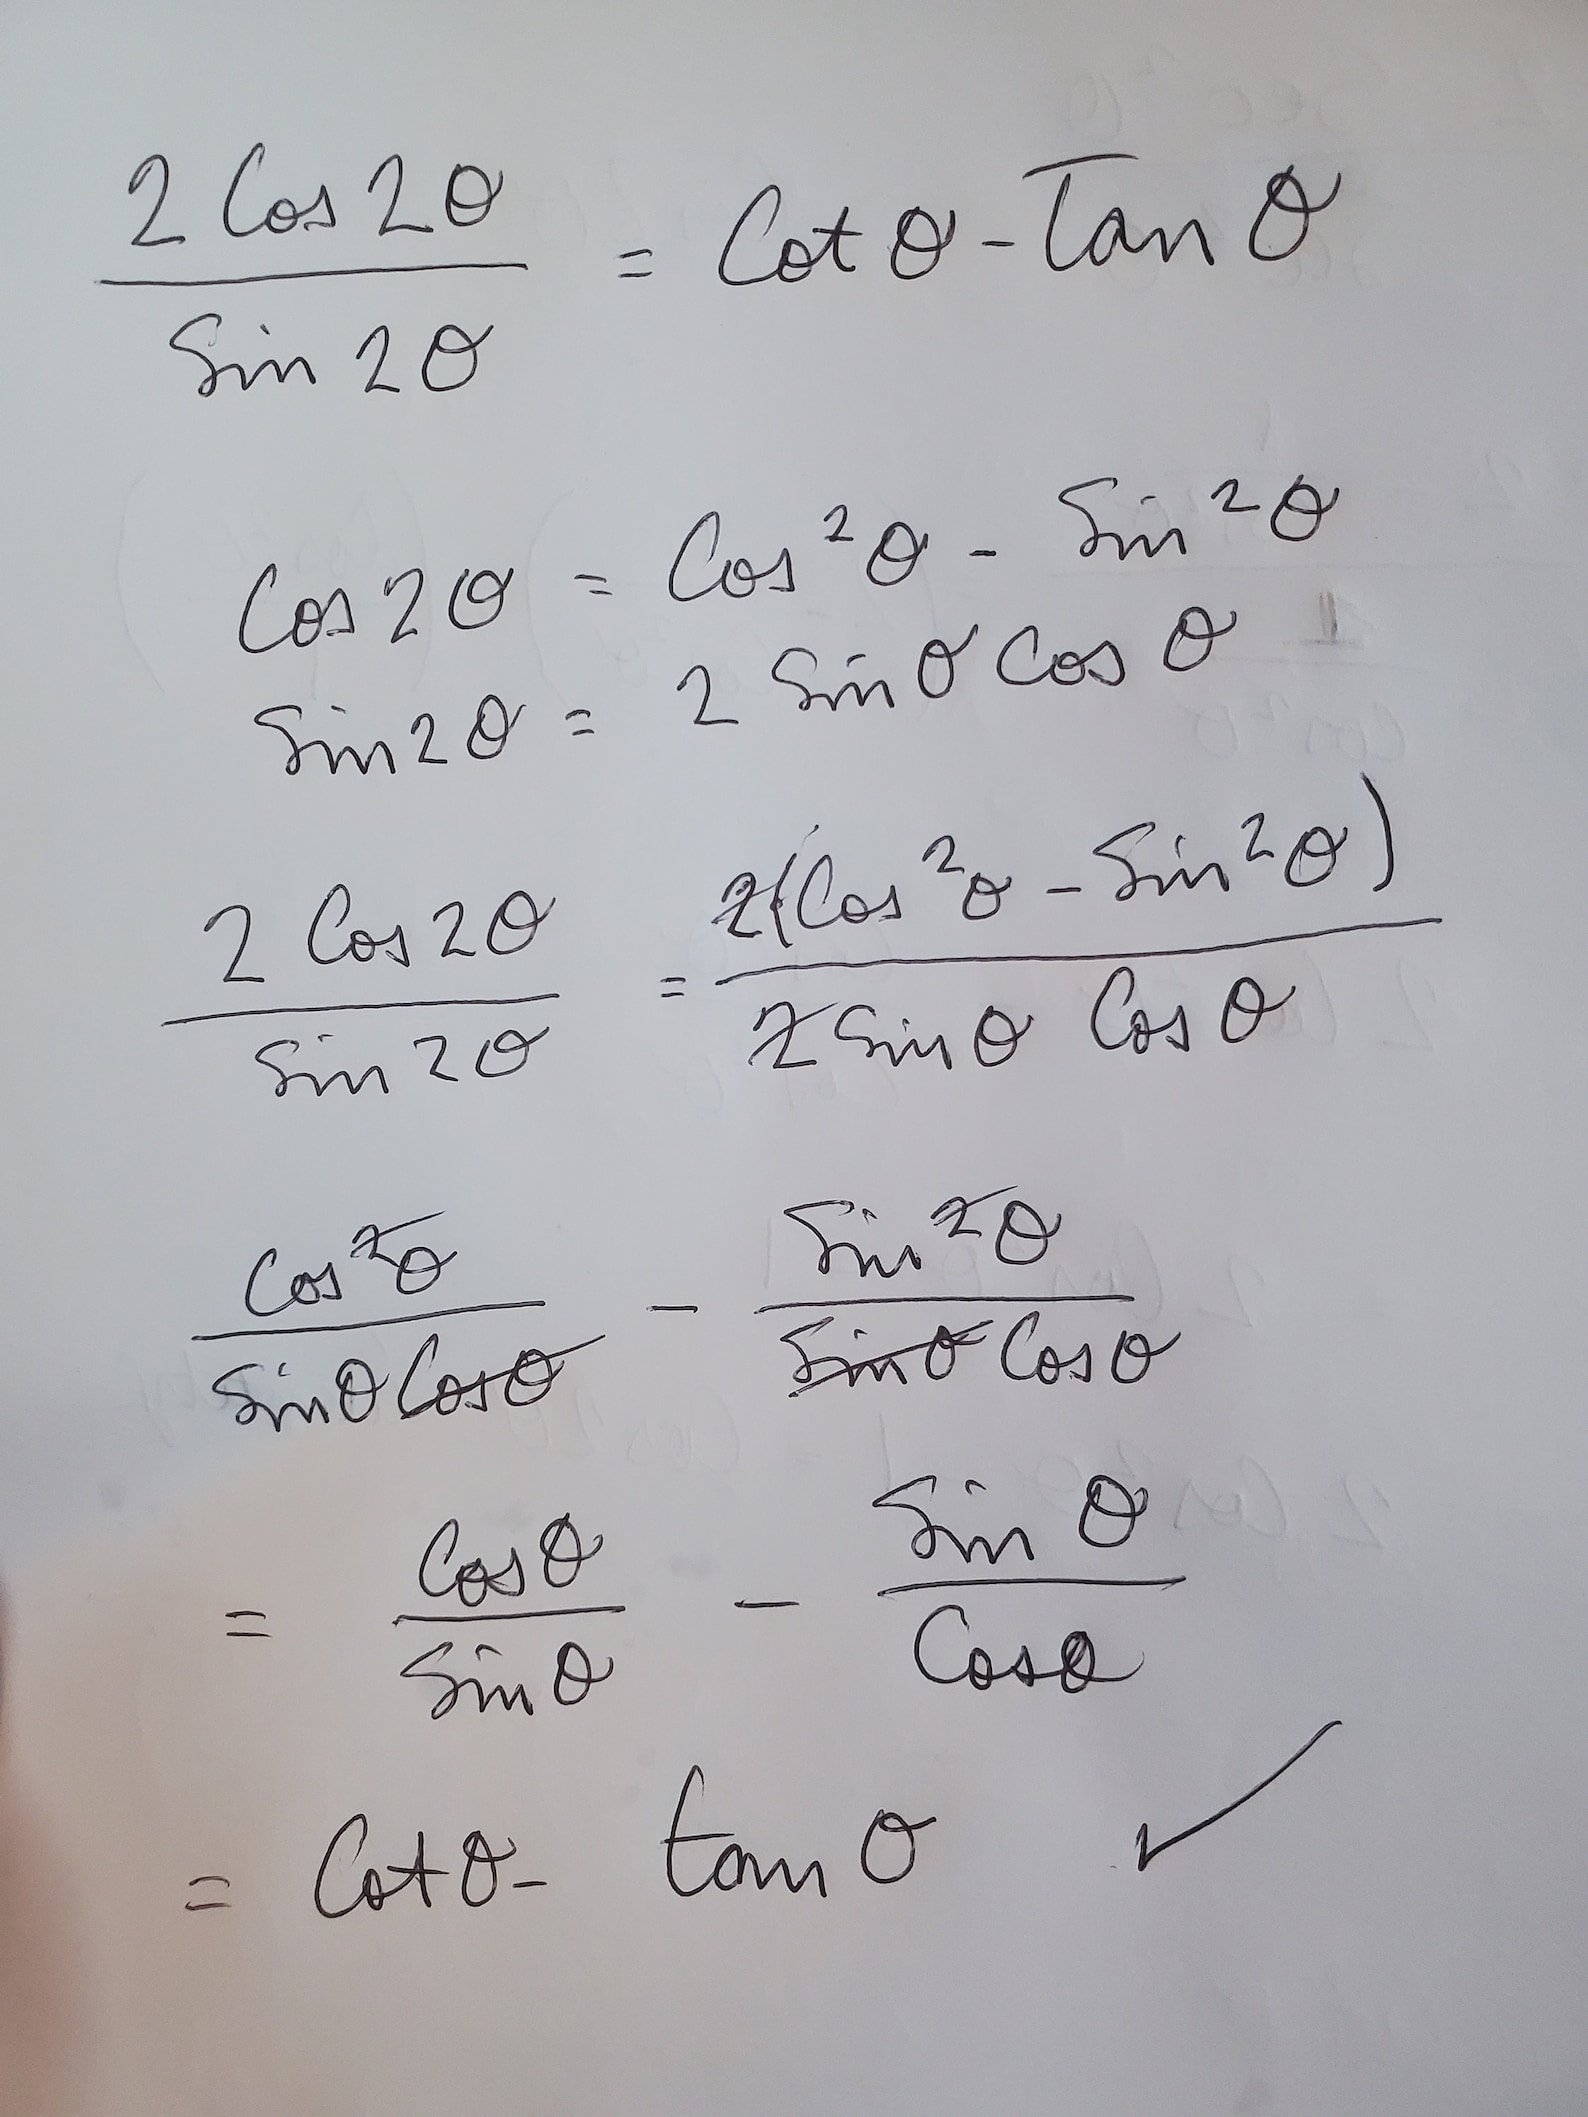 2 Cos 2θ / Sin 2θ = Cot θ - Tan θ
Cos 2θ = Cos²θ - Sin²θ
Sin 2θ = 2 Sin θ Cos θ
2 Cos 2θ / Sin 2θ = 2(Cos²θ - Sin²θ) / 2 Sin θ Cos θ
Cos²θ / Sin θ Cos θ - Sin²θ / Sin θ Cos θ
= Cos θ / Sin θ - Sin θ / Cos θ
= Cot θ - tan θ ✓